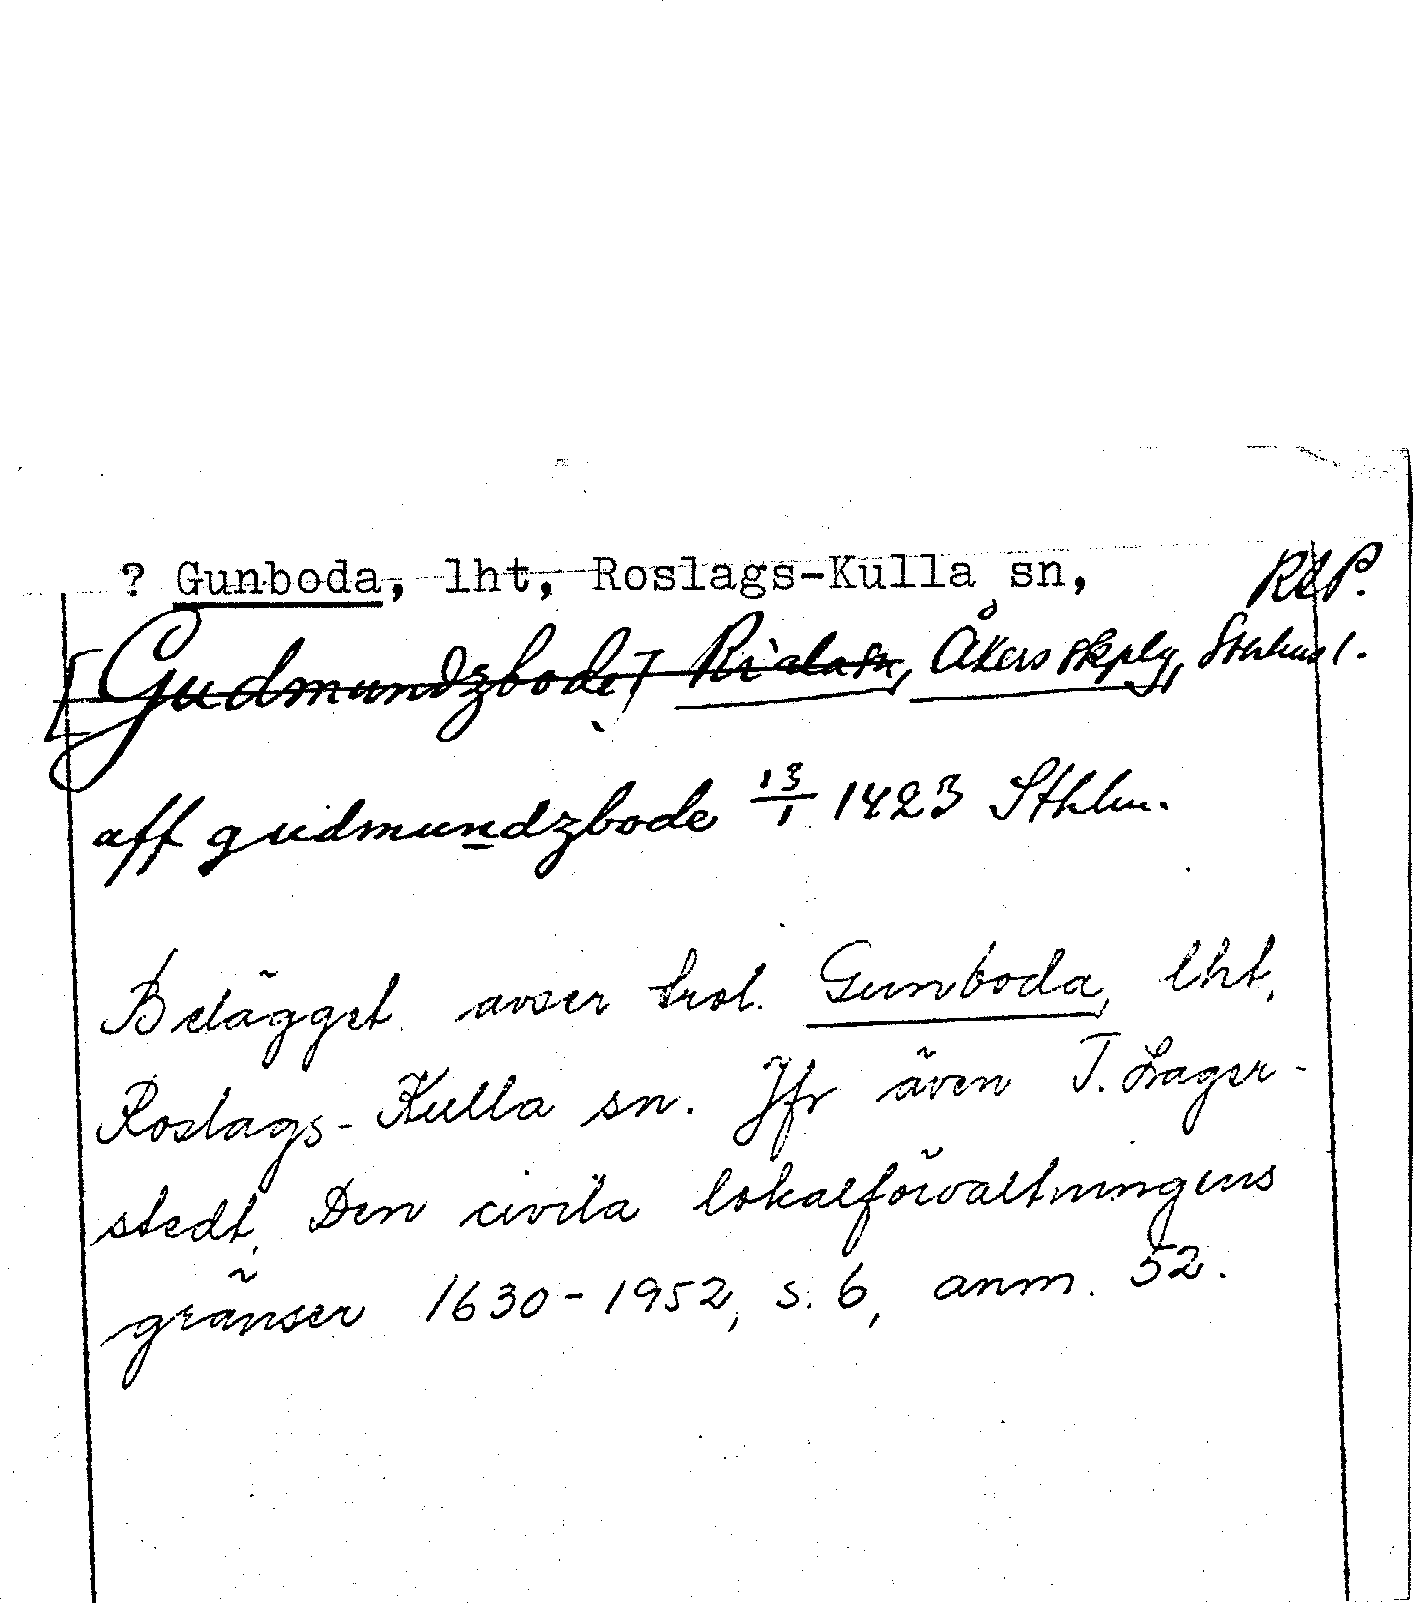 ? Gunboda, lht, Roslags-Kulla sn, RAP.
[Gudmundzbode] Riala sn, Åkers skplg, Sthlms l.
aff gudmundzbode 13/1 1423 Sthlm.
Belägget avser trol. Gunboda, lht,
Roslags-Kulla sn. Jfr även T. Lager-
stedt, Den civila lokalförvaltningens
gränser 1630-1952, s. 6, anm. 52.